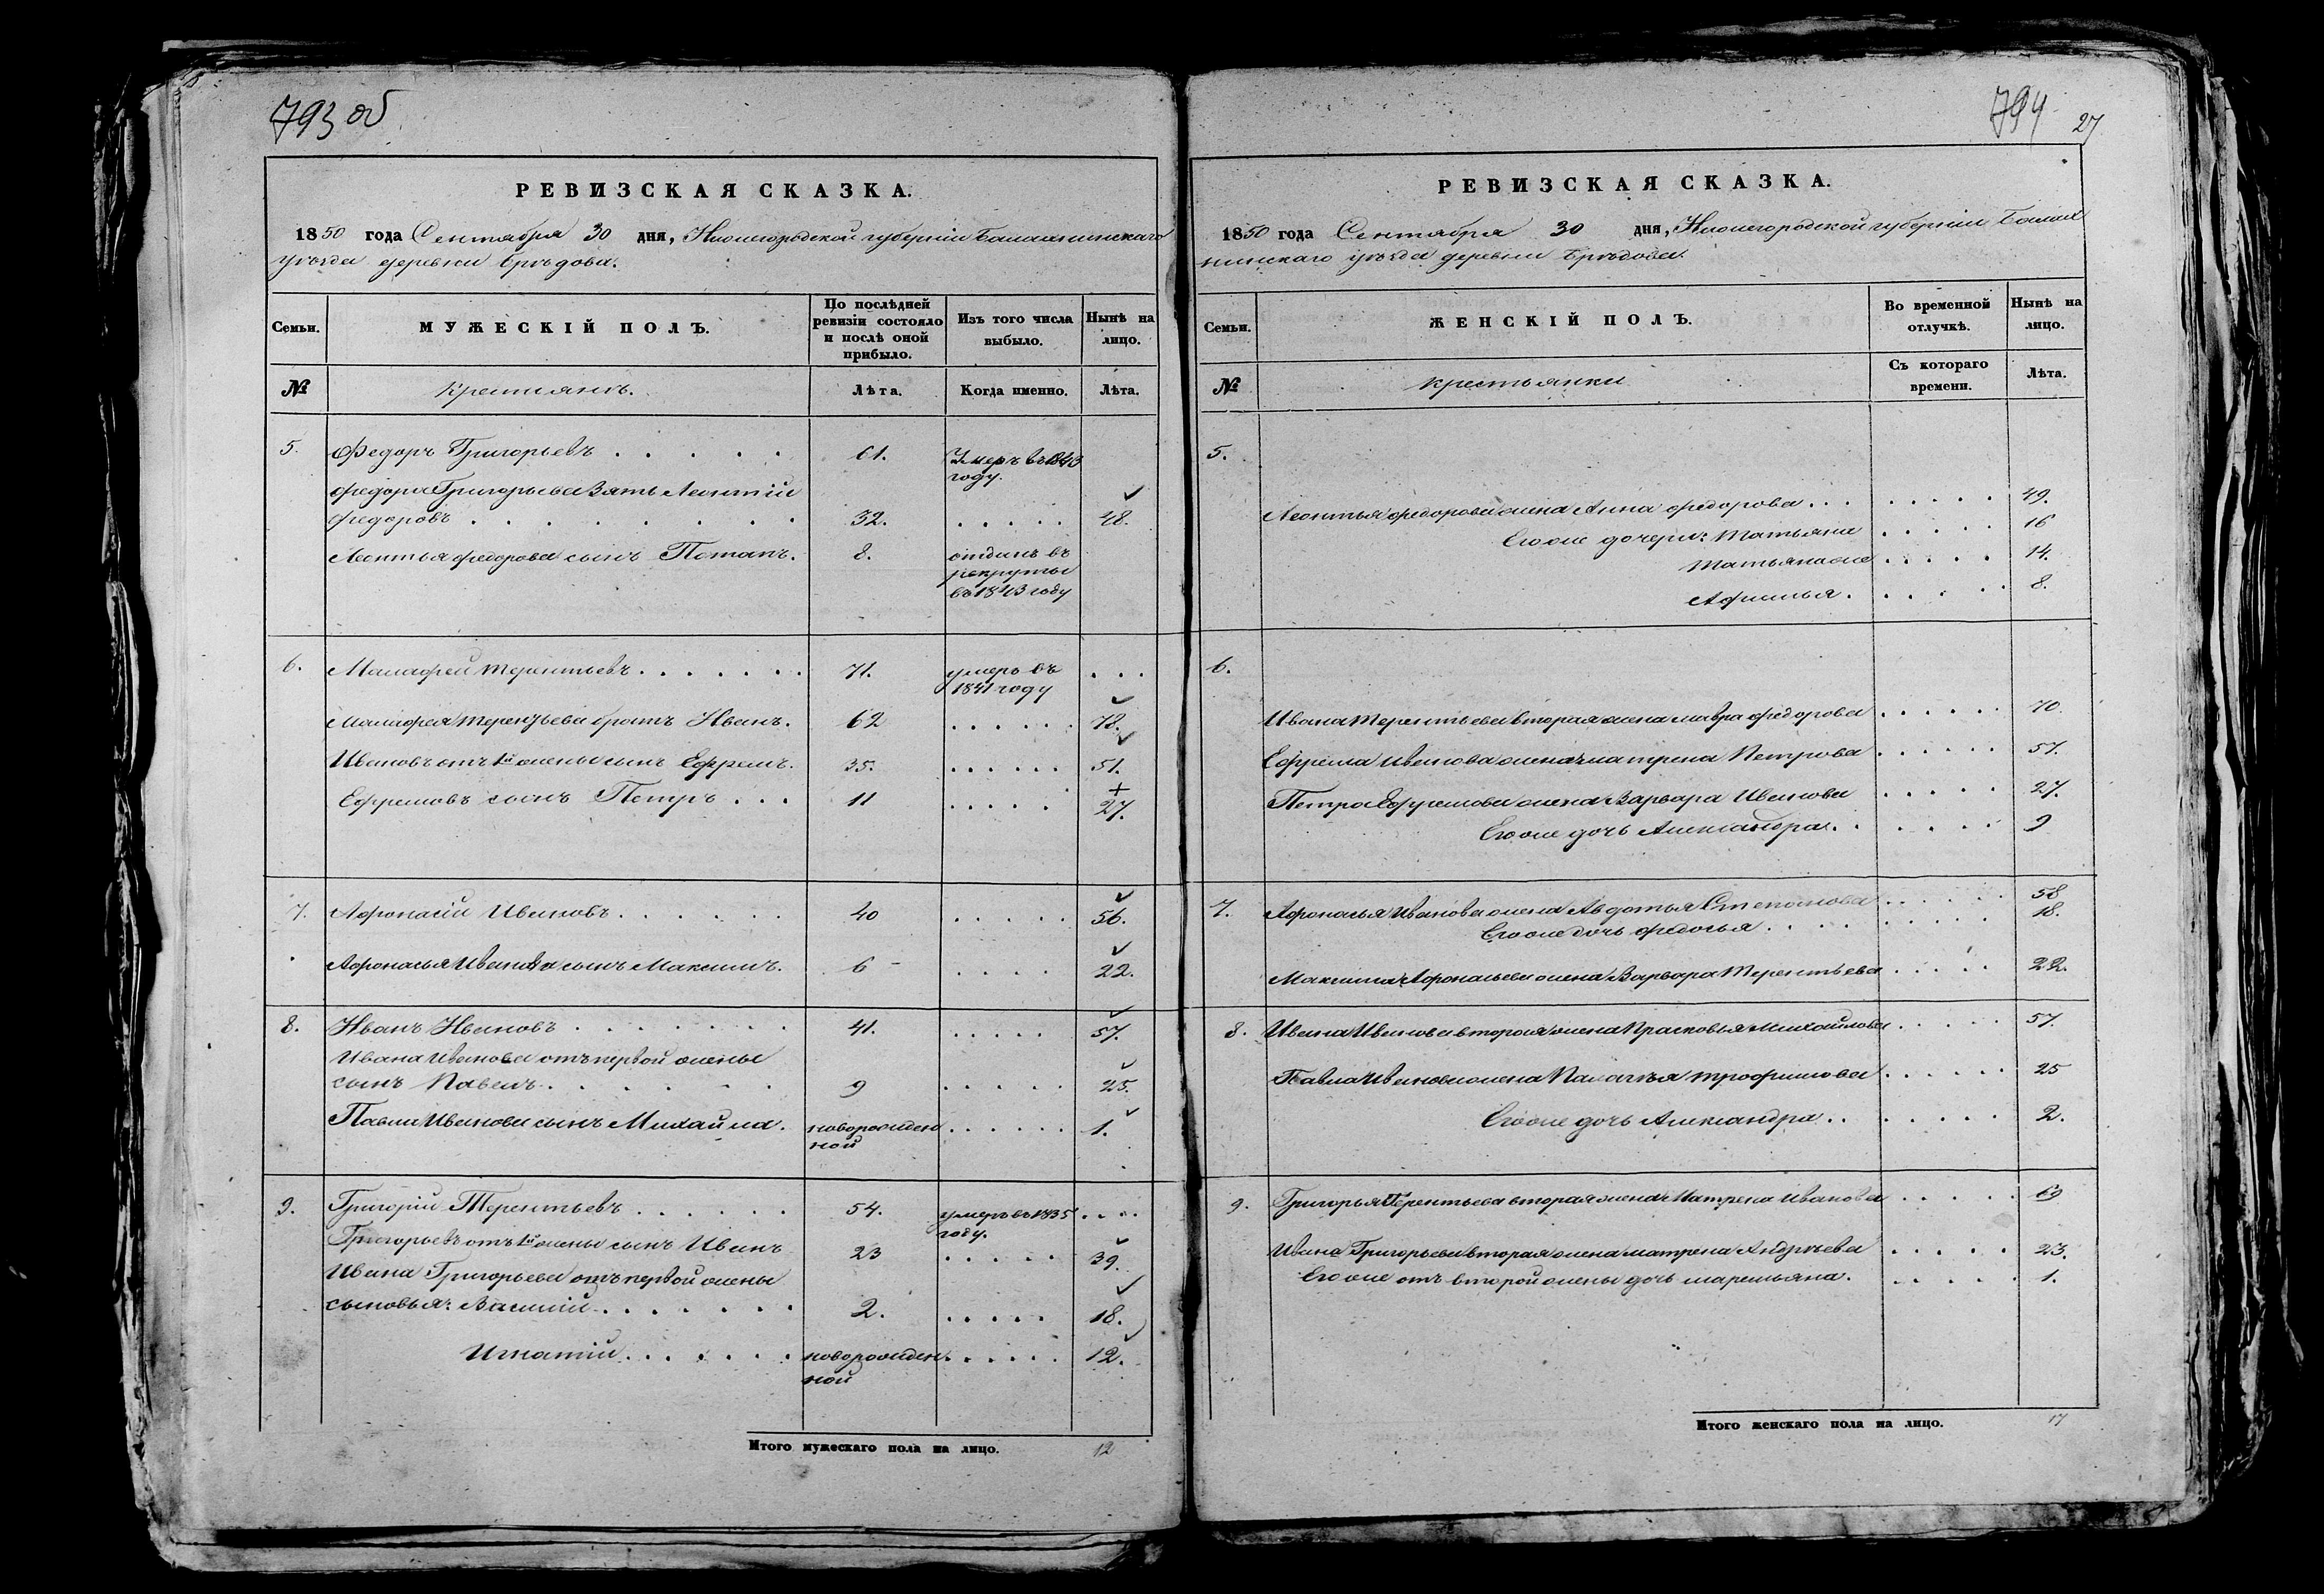 793 об
РЕВИЗСКАЯ СКАЗКА.
1850 года Сентября 30 дня, Нижегородской губернiи Балахнинскаго
уѣзда деревни Брѣдова.
Семьи. МУЖЕСКIЙ ПОЛЪ. По послѣдней ревизiи состояло и послѣ оной прибыло. Изъ того числа выбыло. Нынѣ на лицо.
№ Крестьянъ. Лѣта. Когда именно. Лѣта.
5. Федоръ Григорьевъ . . . . . 61. Умеръ въ 1843
году.
Федора Григорьева Зять Леонтiй
Федоровъ . . . . . . . . 32. . . . . . 48.
Леонтья Федорова сынъ Потапъ. 8. отданъ въ
рекруты
въ 1843 году
6. Малафей Терентьевъ . . . . . . . 71. умеръ въ . . .
1841 году
Малафея Терентьева братъ Иванъ. 62 . . . . . . 78.
Ивановъ отъ 1й жены сынъ Ефремъ. 35. . . . . . . 51.
Ефремовъ сынъ Петръ . . . 11 . . . . . 27.
7. Афонасiй Ивановъ . . . . . . 40 . . . . . 56.
Афонасья Иванова сынъ Максимъ. 6 - . . . . 22.
8. Иванъ Ивановъ . . . . . . . . 41. . . . . . 57.
Ивана Иванова отъ первой жены
сынъ Павелъ . . . . . . . 9 . . . . . 25.
Павла Иванова сынъ Михайла. новорожден . . . . . . 1.
ной
9. Григорiй Терентьевъ . . . . . . 54. умеръ въ 1835 . . . .
году.
Григорьевъ отъ 1й жены сынъ Иванъ 23 . . . . . 39.
Ивана Григорьева отъ первой жены
сыновья: Василiй . . . . . . . 2. . . . . . 18.
Игнатiй . . . . . . новорожден . . . . . . 12.
ной
Итого мужескаго пола на лицо. 12
794 27
РЕВИЗСКАЯ СКАЗКА.
1850 года Сентября 30 дня, Нижегородской губернiи Балах
нинскаго уѣзда деревни Брѣдова.
Семьи. ЖЕНСКIЙ ПОЛЪ. Во временной отлучкѣ. Нынѣ на лицо.
№ Крестьянки Съ котораго времени. Лѣта.
5.
Леонтья Федорова жена Анна Федорова . . . . . . . . 49.
Егоже дочери: Татьяна . . . . . 16
Татьянаже . . . . . 14.
Афимья . . . . . . 8.
6.
Ивана Терентьева вторая жена Мавра Федорова . . . . . . 70.
Ефрема Иванова жена Матрена Петрова . . . . . . 51.
Петра Ефремова жена Варвара Иванова . . . . . . 27.
Егоже дочь Александра . . . . . . . 9
7. Афонасья Иванова жена Авдотья Степанова . . . . . . 58
Егоже дочь Федосья . . . . . . . . . 18.
Максима Афонасьева жена Варвара Терентьева . . . . . 22.
8. Ивана Иванова вторая жена Прасковья Михайлова . . . . . 57.
Павла Иванова жена Палагѣя Трофимова . . . . . . 25
Егоже дочь Александра . . . . . . . 2.
9. Григорья Терентьева вторая жена Матрена Иванова . . . . . 69
Ивана Григорьева вторая жена Матрена Андрѣева . . . . . 23.
Егоже отъ второй жены дочь Маремьяна. . . . . . 1.
Итого женскаго пола на лицо. 17